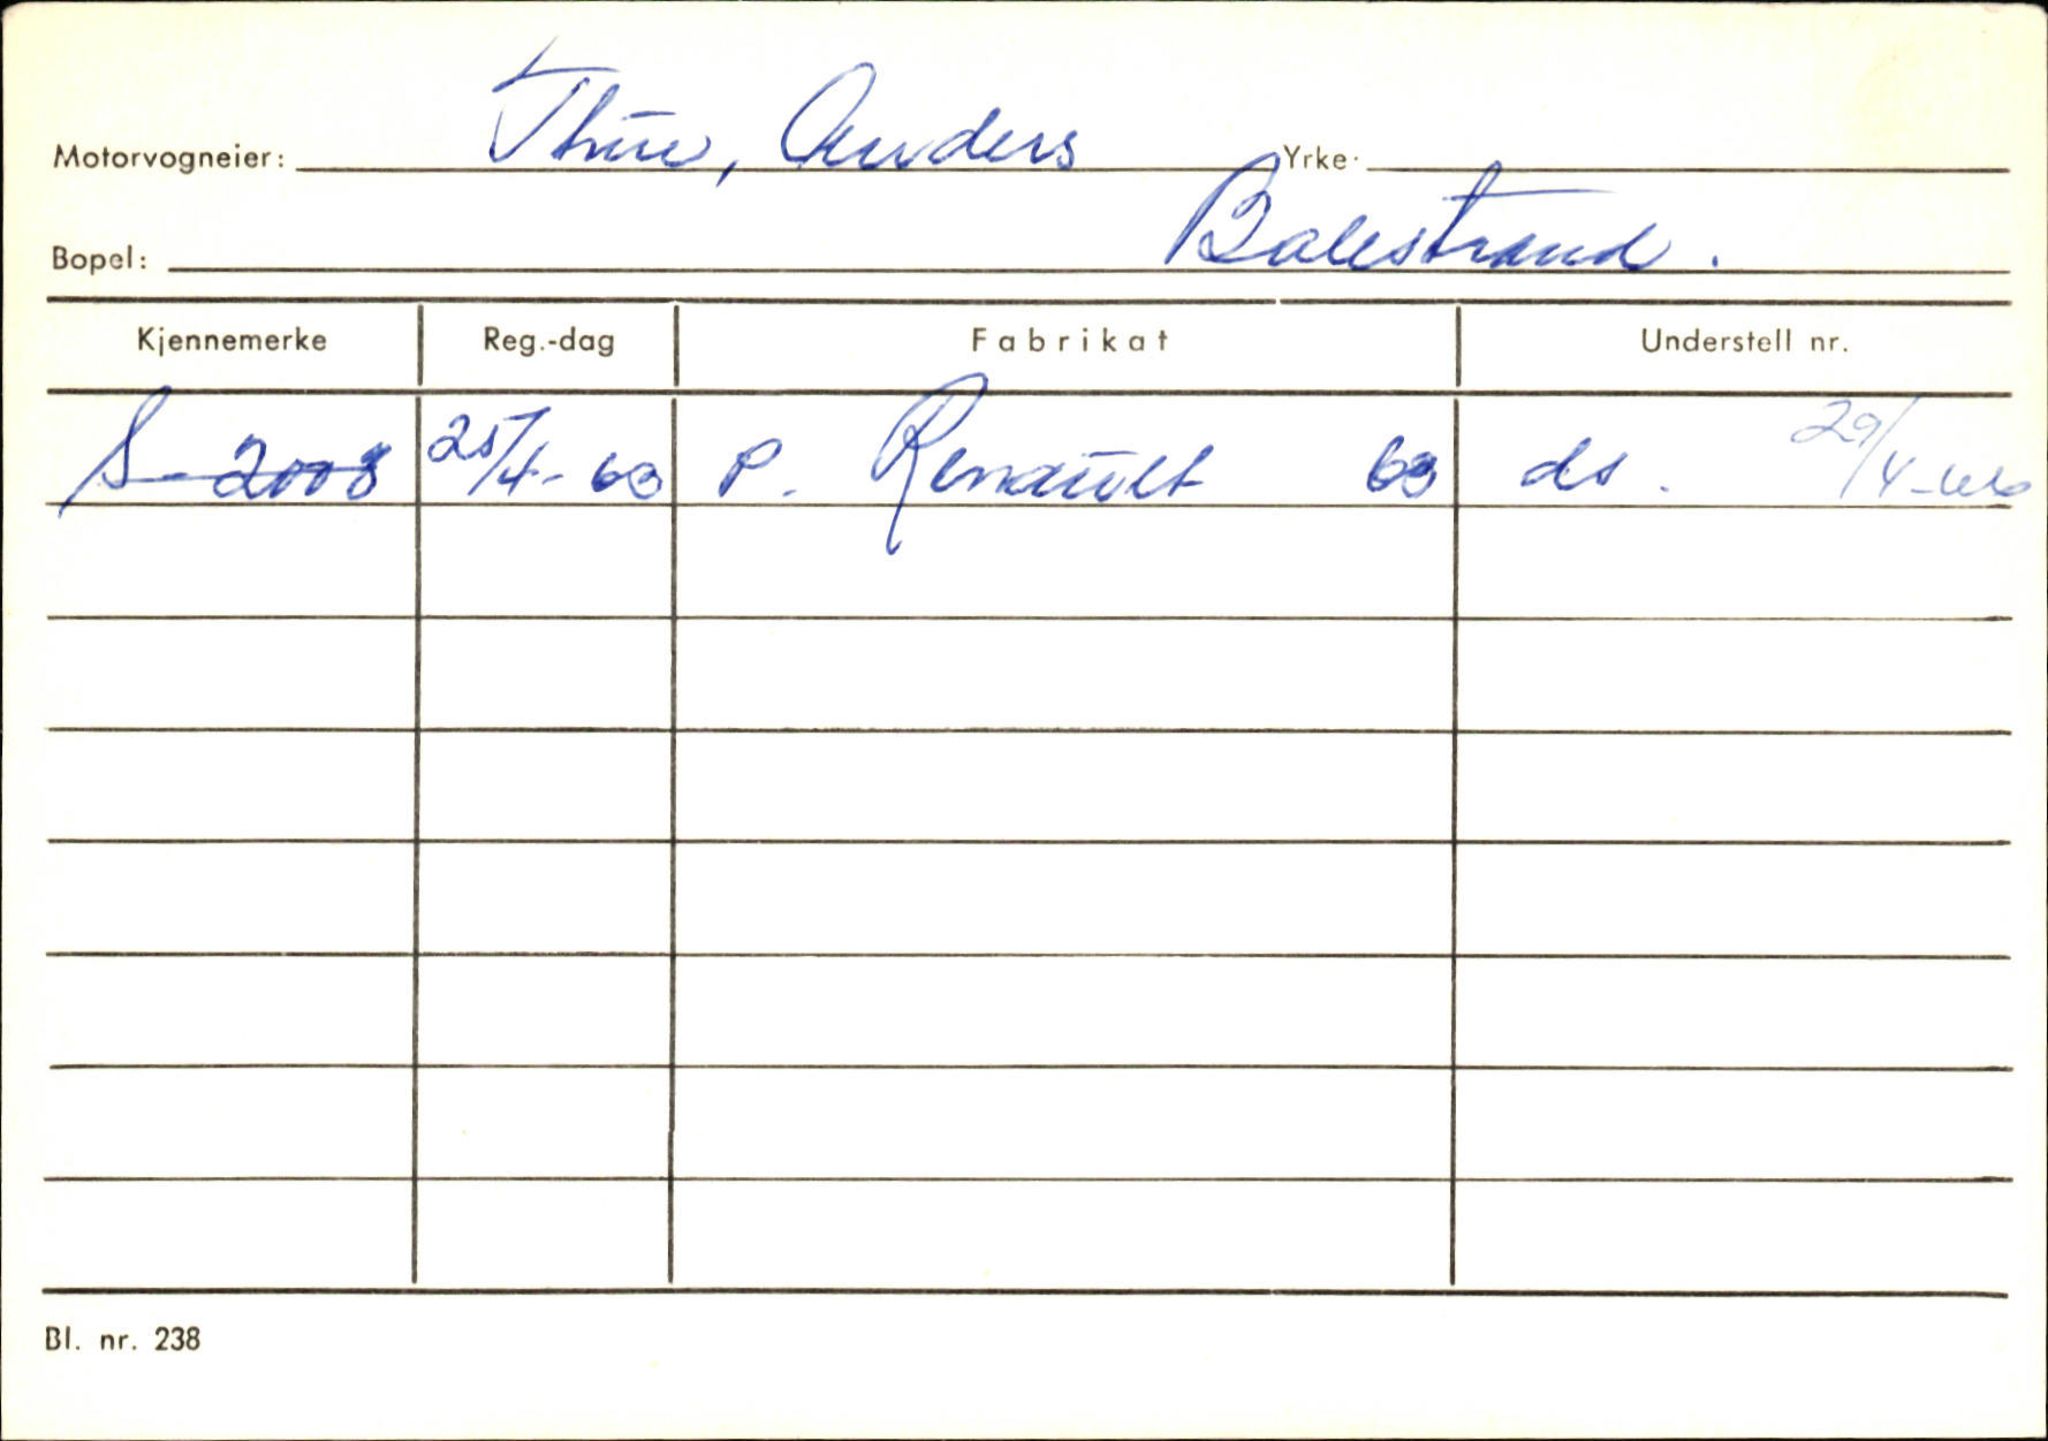 Motorvogneier: Thue, Anders Yrke:
Bopel: Balestrand.
Kjennemerke Reg.-dag Fabrikat Understell nr.
S-2008 25/4-63 P. Renault 63 ds. 29/4-66
Bl. nr. 238